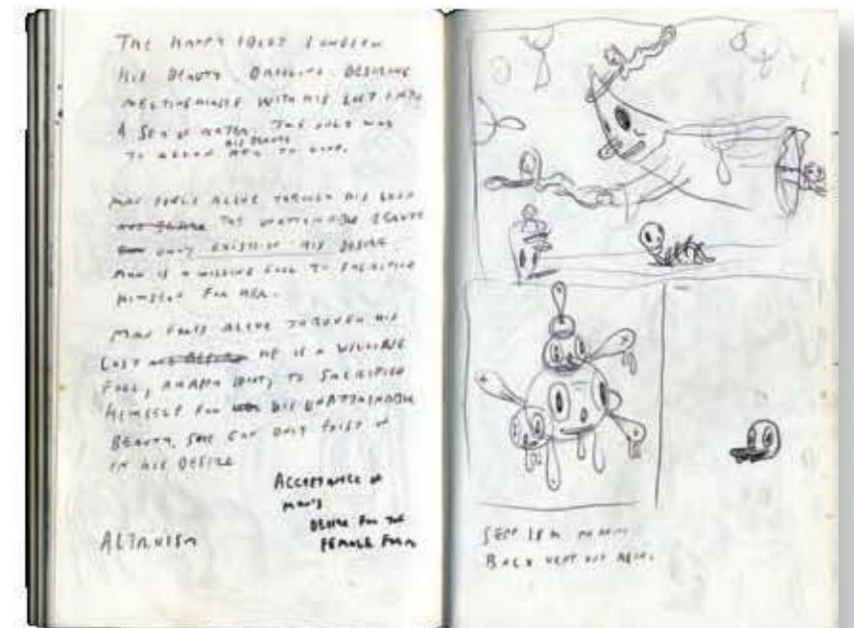 THE HAPPY IDIOT
HIS BEAUTY. DESIRING
MELTING HIMSELF WITH HIS LUST INTO
A SEA OF WATER. THE ONLY WAY
HIS BEAUTY
TO ALLOW HER TO
MAN FEELS ALIVE THROUGH HIS LUST
THE UNATTAINABLE BEAUTY
ONLY EXISTS IN HIS DESIRE
MAN IS A WILLING FOOL TO SACRIFICE
HIMSELF FOR HER.
MAN FEELS ALIVE THROUGH HIS
LUST HE IS A WILLING
FOOL, A HAPPY IDIOT, TO SACRIFICE
HIMSELF FOR HIS UNATTAINABLE
BEAUTY. SHE CAN ONLY EXIST IN
IN HIS DESIRE
ACCEPTANCE OF
MAN'S
DESIRE FOR THE
FEMALE FORM
ALTRUISM
SEPT 18
BACK WENT OUT AGAIN.